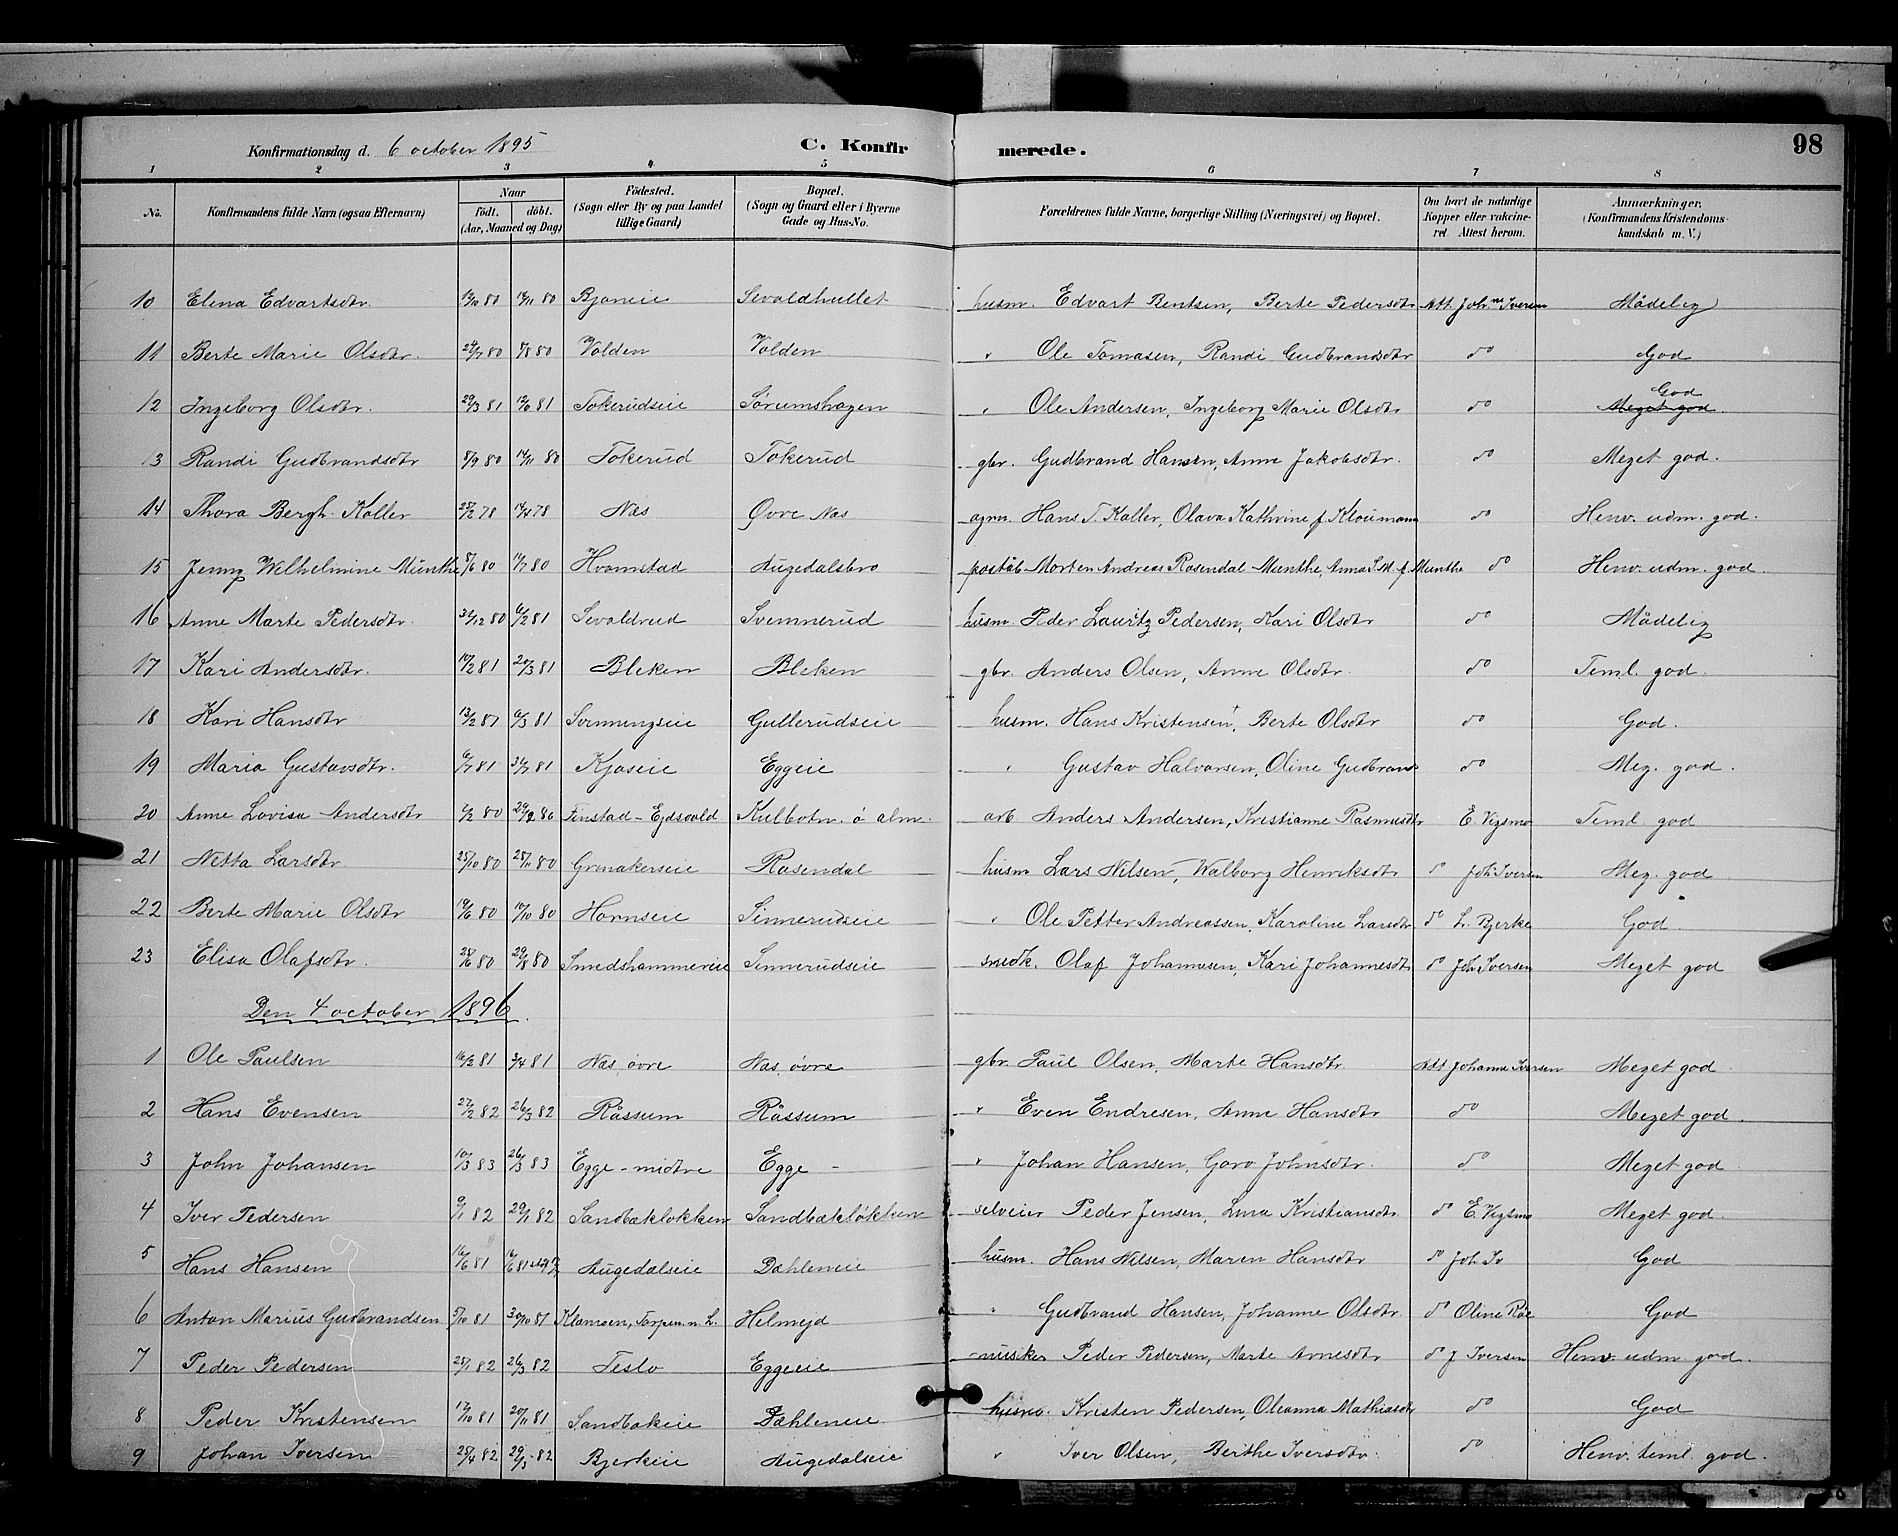 98
Konfirmationsdag d. 6 october 1895 C. Konfirmerede.
1 2 3 4 5 6 7 8
No. Konfirmandens fulde Navn (ogsaa Efternavn) Naar födt. döbt. (Aar, Maaned og Dag) Födested. (Sogn eller By og paa Landet tillige Gaard) Bopæl. (Sogn og Gaard eller i Byerne Gade og Hus-No. Forældrenes fulde Navne, borgerlige Stilling (Næringsvei) og Bopæl. Om havt de naturlige Kopper eller vakcineret. Attest herom. Anmærkninger. (Konfirmandens Kristendomskundskab m. V.)
10 Elena Edvartsdtr. 80 80 Bjoneie Sevaldhullet husm. Edvart Bentsen, Berte Pedersdtr Att. Joh.ne Iversen Mådelig
11 Berte Marie Olsdtr. 80 80 Volden Volden " Ole Tomasen, Randi Gudbrandsdtr do God
12 Ingeborg Olsdtr. 29/3 81 12/6 81 Tokerudseie Sørumshagen " Ole Andersen, Ingeborg Marie Olsdtr do God Meget god.
13 Randi Gudbrandsdtr 8/9 80 14/11 80 Tokerud Tokerud gbr. Gudbrand Hansen, Anne Jakobsdtr. do Meget god.
14 Thora Bergh. Koller 25/2 78 14/4 78 Næs Øvre Næs agrn. Hans T. Koller, Olava Kathrine f. Kloumann do Henv. udm. god.
15 Jenny Wilhelmine Munthe 8/6 80 11/7 80 Hvamstad Augedalsbro poståb. Morten Andreas Rosendal Munthe, Anna S. M. f. Munthe do Henv. udm. god.
16 Anne Marte Pedersdtr. 31/12 80 6/2 81 Sevaldrud Svemmerud husm. Peder Lauritz Pedersen, Kari Olsdtr do Mådelig
17 Kari Andersdtr. 10/2 81 20/3 81 Bleken Bleken gbr. Anders Olsen, Anne Olsdtr. do Teml. god.
18 Kari Hansdtr 13/2 81 6/3 81 Sonmengseie Gullerudseie husm. Hans Kristensen, Berte Olsdtr do God.
19 Maria Gustavsdtr. 81 31/7 81 Kjoseie Eggeie " Gustav Halvorsen, Oline Gudbrands do Meg. god.
20 Anne Lovisa Andersdtr 80 29/2 80 Finstad - Ejdsvold Kulbotn. ö alm. arb. Anders Andersen, Kristianne Rasmusdtr E. Vigsmo Teml. god
21 Netta Larsdtr 25/10 80 28/11 80 Grinakerseie Rosendal husm Lars Nilsen, Walborg Henriksdtr do Joh Iversen Meg. god
22 Berte Marie Olsdtr 14/6 80 17/10 80 Hornseie Sinnerudseie " Ole Petter Andreassen, Karoline Larsdtr. do L. Bjerke God.
23 Elisa Olafsdtr. 28/6 80 29/8 80 Smedshammereie Sinnerudseie snedk. Olaf Johannesen, Kari Johannesdtr do Joh Iversen Meget god
Den 4 october 1896.
1 Ole Paulsen 16/2 81 3/4 81 Næs, øvre Næs, øvre gbr. Paul Olsen, Marte Hansdtr. Att Johanne Iversen Meget god.
2 Hans Evensen 27/2 82 26/3 82 Råssum Råssum " Even Endresen, Anne Hansdtr do Meget god.
3 John Johansen 10/3 83 26/3 83 Egge - midtre Egge - " Johan Hansen, Goro Johnsdtr. do Meget god.
4 Iver Pedersen 9/1 82 29/1 82 Sandbækløkken Sandbækløkken selveier Peder Jensen, Lina Kristiansdtr do E. Vigsmo Meget god.
5 Hans Hansen 16/6 81 16/6 81 Augedalseie Dæhleneie husm. Hans Nilsen, Maren Hansdtr do Joh Iv God
6 Anton Marius Gudbrandsen 5/10 81 30/10 81 Klomoen, Torpen n. L. Helmejd " Gudbrand Hansen, Johanne Olsdtr. do Oline Röe God
7 Peder Pedersen 25/1 82 26/3 82 Teslo Eggeeie musiker Peder Pedersen, Marte Arnesdtr do J Iversen Henv. udm god.
8 Peder Kristensen 17/10 81 20/11 81 Sandbakeie Dæhleneie. husm. Kristen Pedersen, Oleanna Mathiasdtr do God
9 Johan Iversen 25/4 82 29/5 82 Bjerkeie Augedalseie " Iver Olsen, Berthe Iversdtr. do Henv. teml. god.